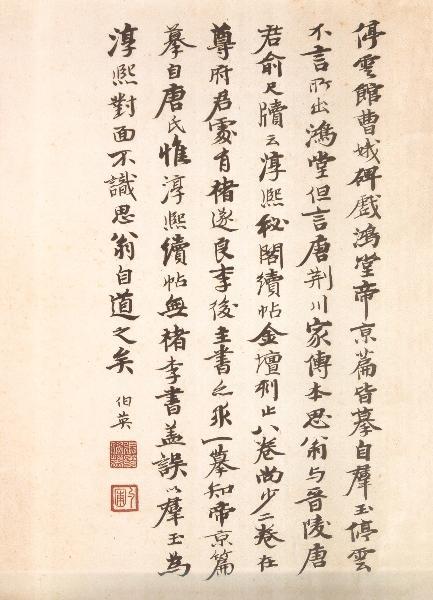 停雲館曹娥碑戲鴻堂帝京篇皆摹自羣玉停雲
不言所出鴻堂但言唐荆川家傳本思翁与晉陵唐
君俞尺牘云淳熙秘閣續帖金壇刊止八卷尚少二卷在
尊府君處有褚遂良李後主書亦求一摹知帝京篇
摹自唐氏惟淳熙續帖無褚李書蓋誤以羣玉為
淳熙對面不識思翁自道之矣
伯英